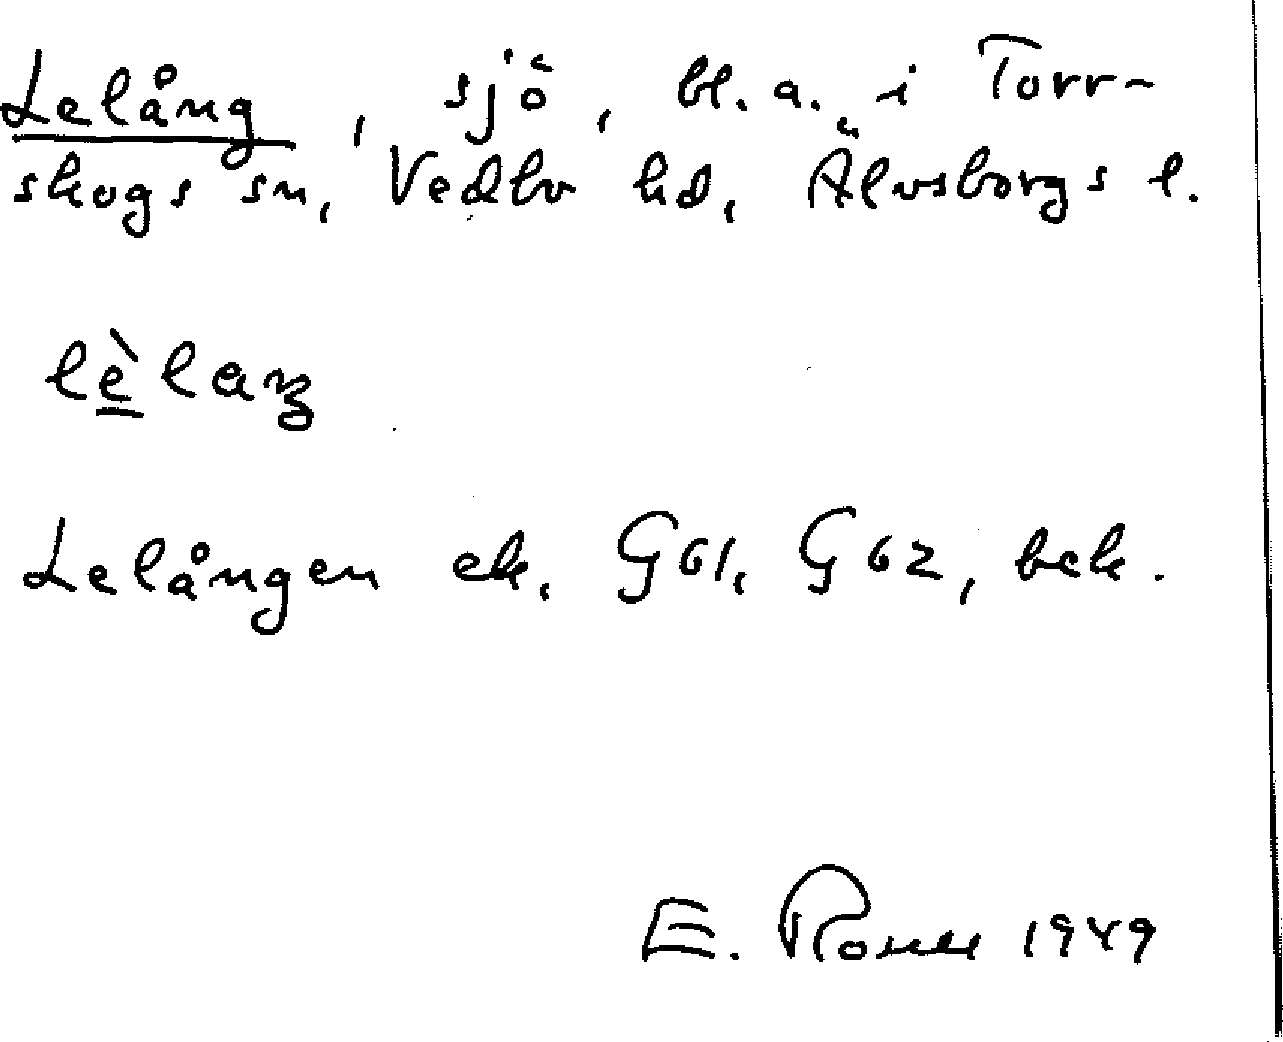 Lelång, sjö, bl. a. i Torr-
skogs sn, Vedbo hd, Älvsborgs l.
lèlaŋ
Lelången ek. G61, G62, bek.
E. 1949